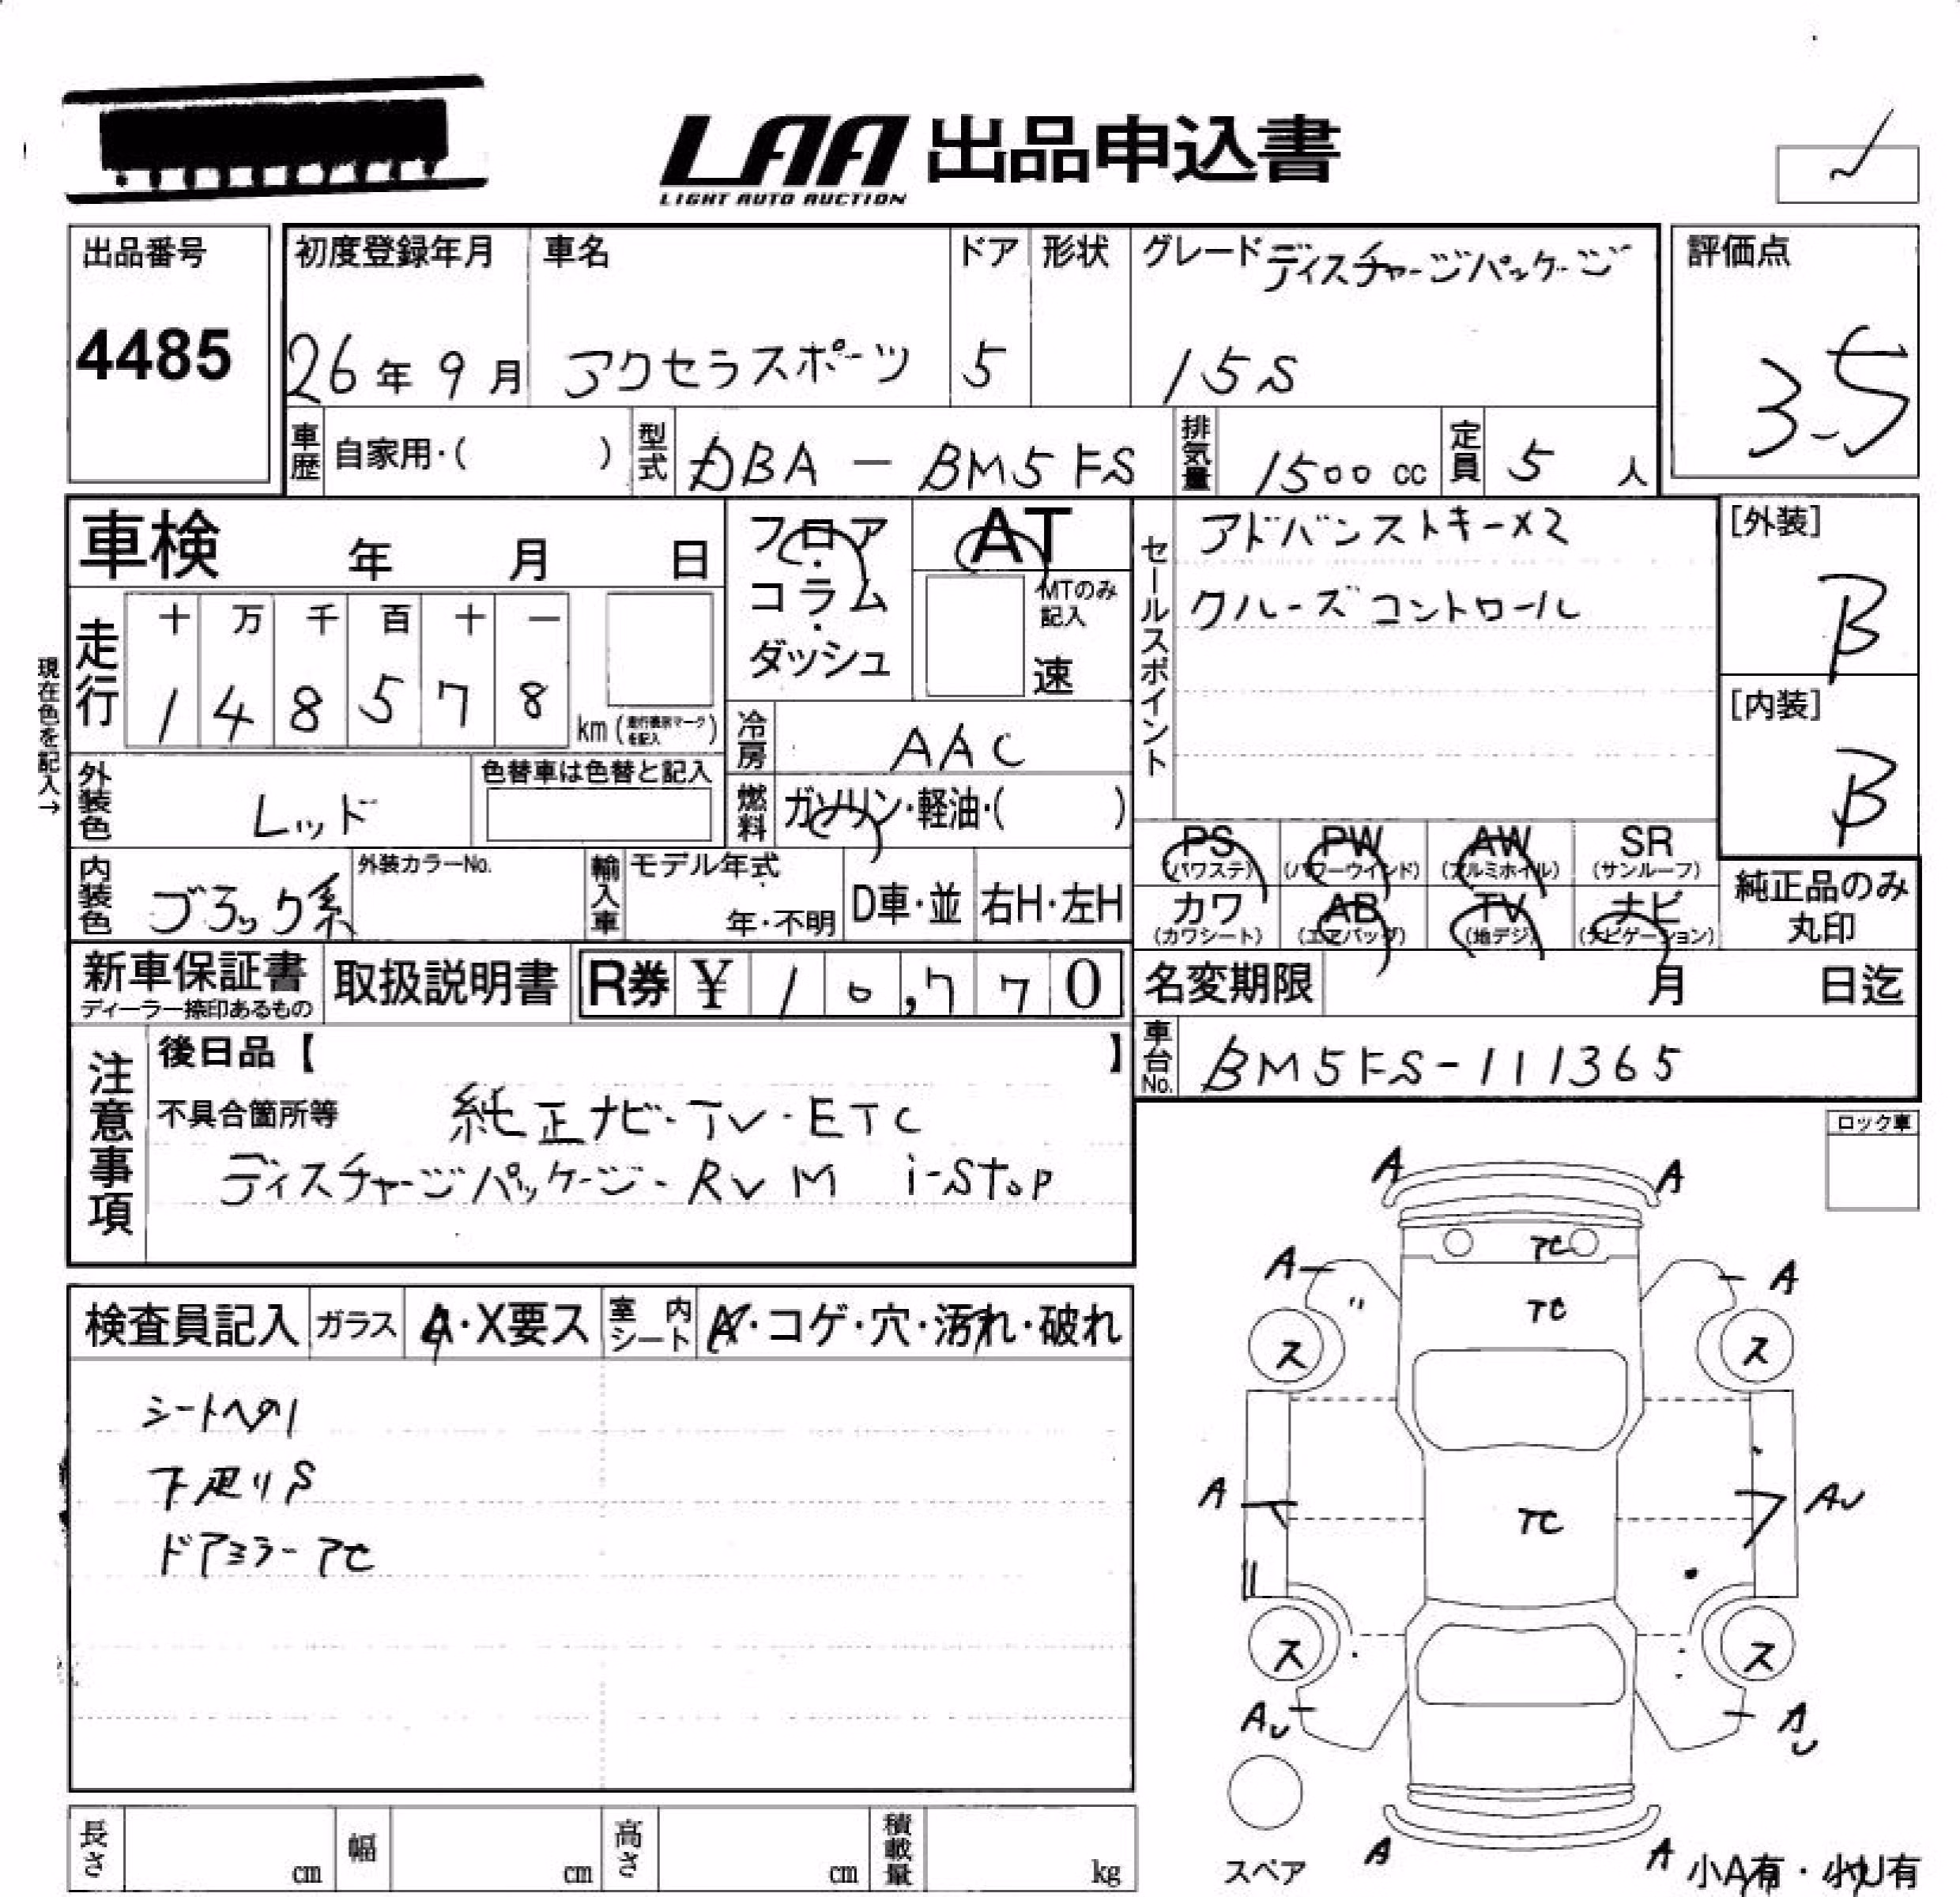 LAA 出品申込書
LIGHT AUTO AUCTION
出品番号
4485
初度登録年月
26年9月
車名
アクセラスポーツ
ドア
5
形状
グレード ディスチャージパッケージ
15S
評価点
3.5
車歴 自家用・( )
型式 DBA-BM5FS
排気量 1500cc
定員 5人
車検 年 月 日
フロア・コラム・ダッシュ
AT
MTのみ記入
速
セールスポイント
アドバンストキー×2
クルーズコントロール
[外装]
B
[内装]
B
現在色を記入→
走行
十 万 千 百 十 一
1 4 8 5 7 8 km (走行機表示マークを記入)
冷房 AAC
外装色 レッド
色替車は色替と記入
燃料 ガソリン・軽油・( )
PS (パワステ)
PW (パワーウインド)
AW (アルミホイル)
SR (サンルーフ)
カワ (カワシート)
AB (エアバッグ)
TV (地デジ)
ナビ (ナビゲーション)
純正品のみ丸印
内装色 ブラック系
外装カラーNo.
輸入車
モデル年式
年・不明
D車・並
右H・左H
新車保証書
ディーラー捺印あるもの
取扱説明書
R券 ¥ 10,770
名変期限 月 日迄
車台No. BM5FS-111365
注意事項
後日品【 】
不具合箇所等 純正ナビ・TV・ETC
ディスチャージパッケージ・RVM i-stop
ロック車
検査員記入
ガラス A・X要ス
室内シート A・コゲ・穴・汚れ・破れ
下廻りS
ドアミラーアC
A A
アC
A A
TC
ス ス
A AU
TC
ス ス
AU AU
A A
スペア
小A有・小U有
長さ cm
幅 cm
高さ cm
積載量 kg